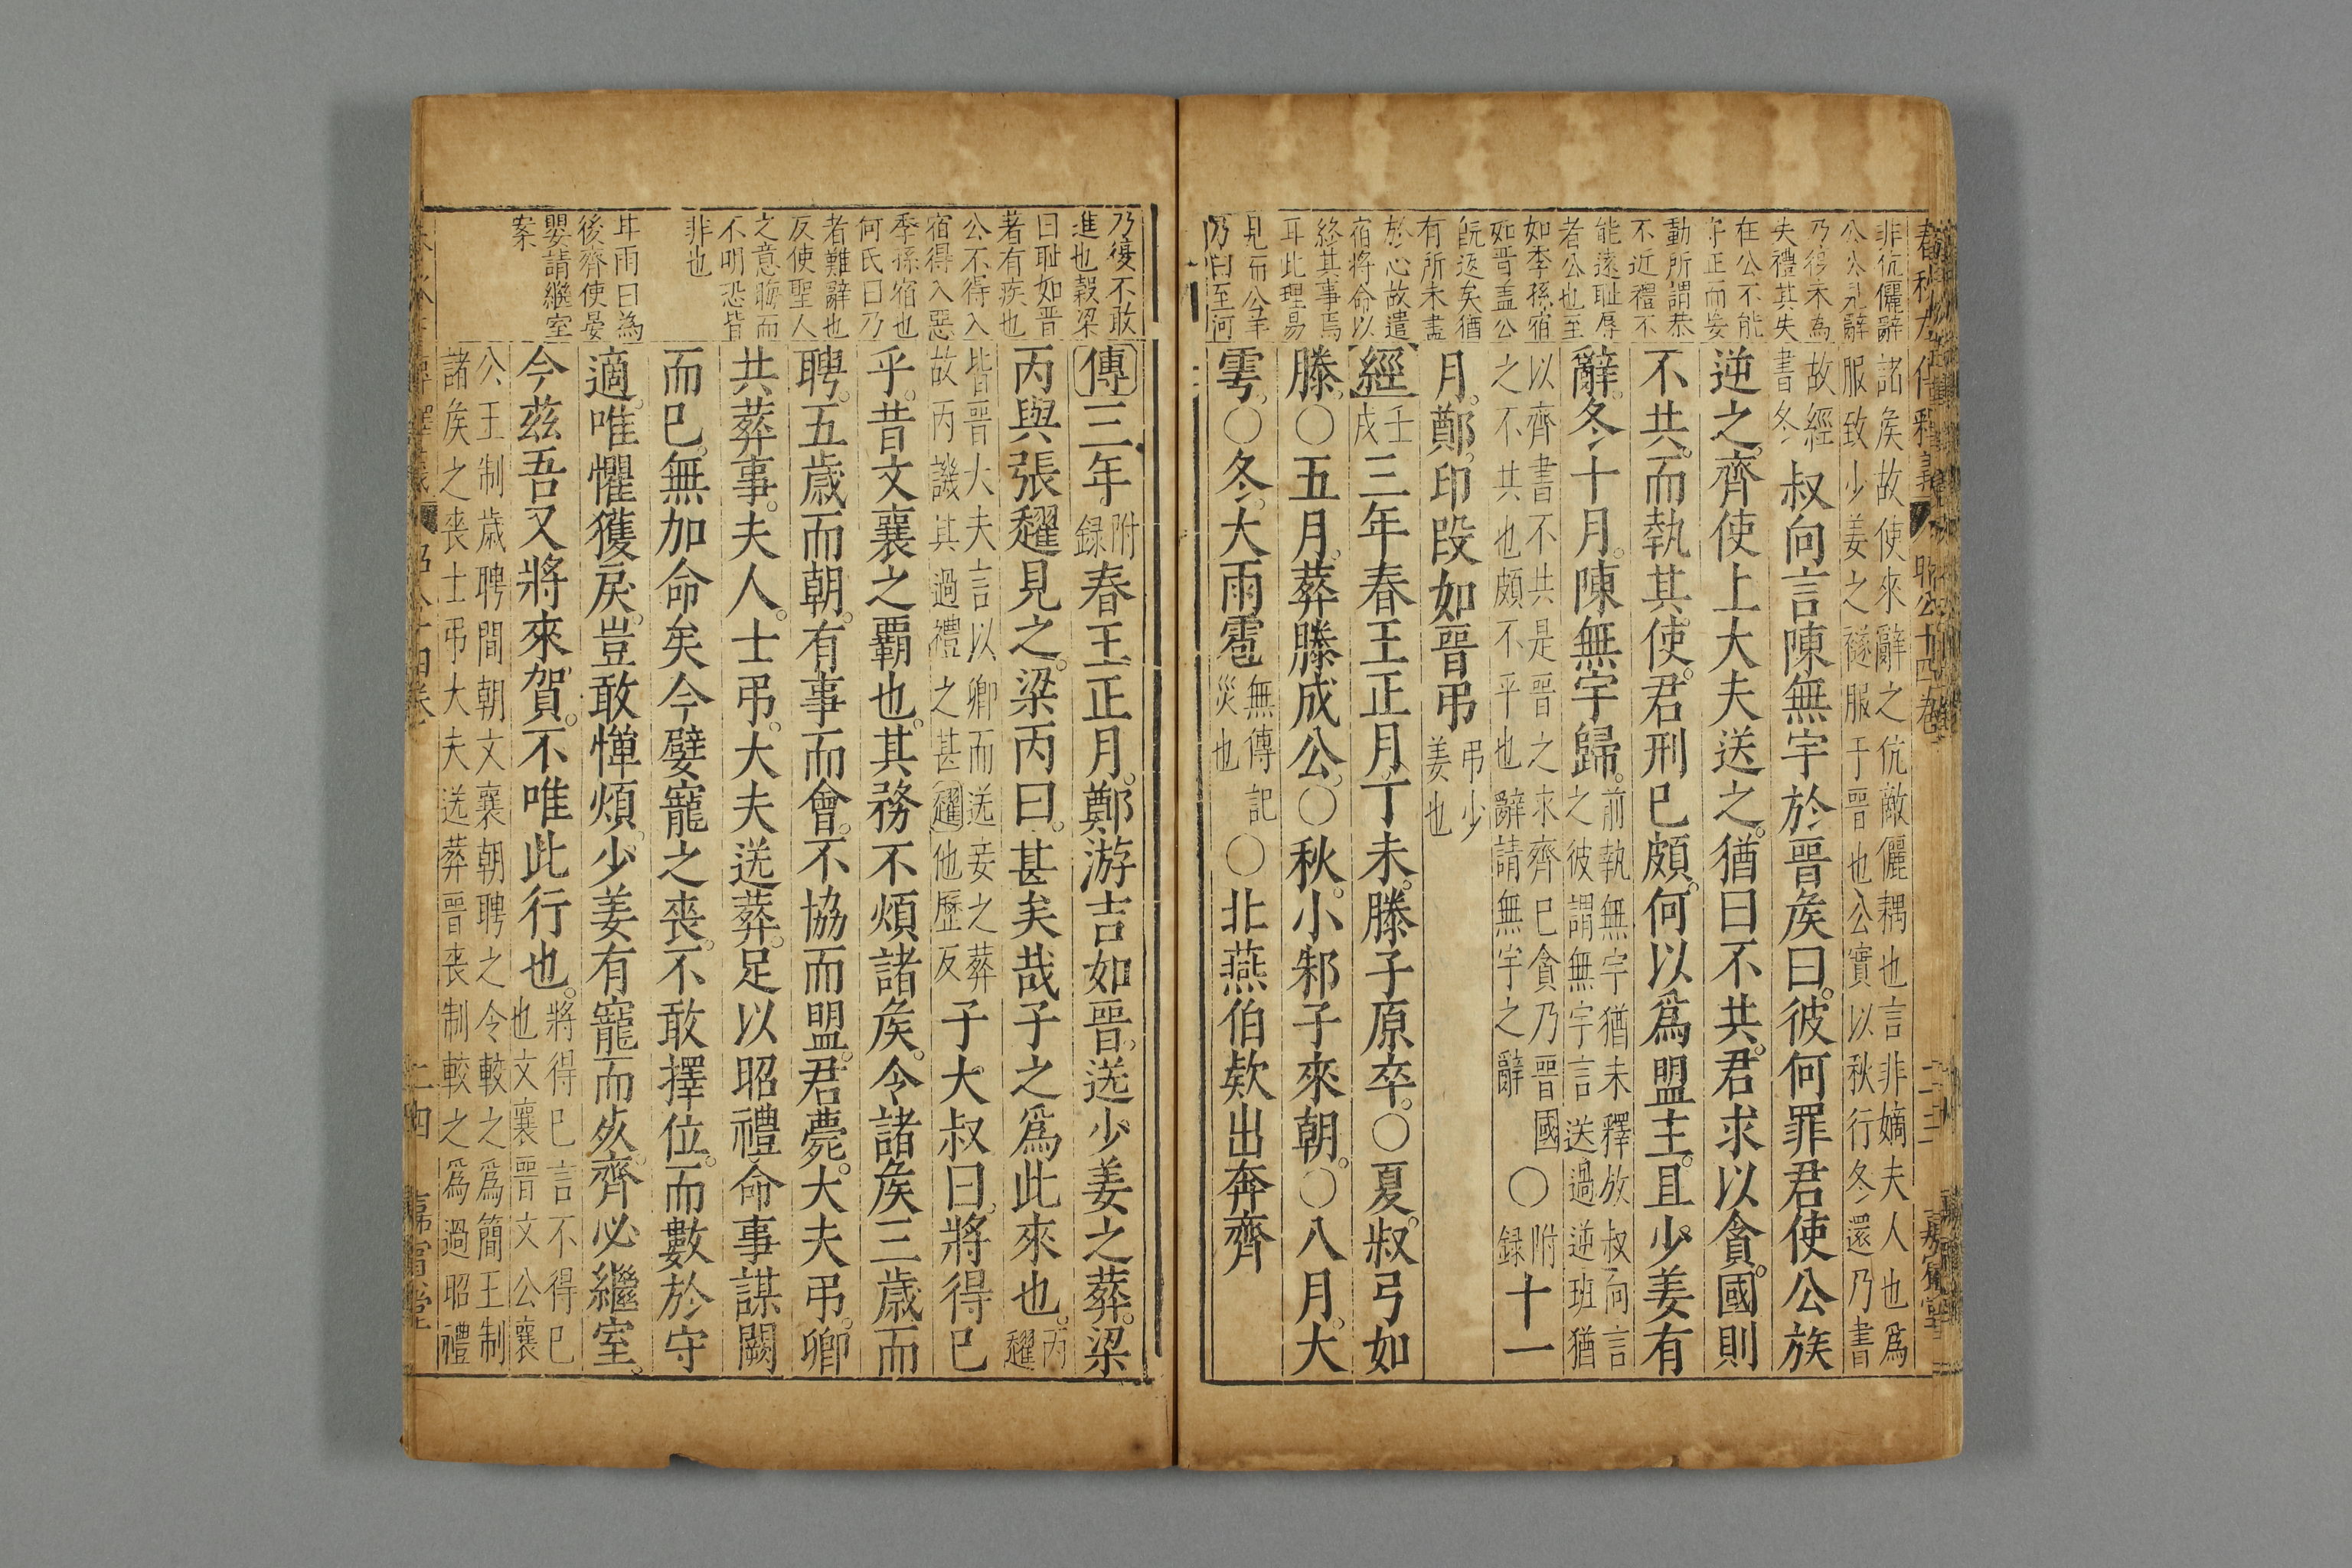 非伉儷辭
公公見辭
乃得未為
失禮其失
在公不能
守正而妄
動所謂恭
不近禮不
能遠恥辱
者公也至
如季孫宿
如晉盖公
旣返矣猶
有所未盡
於心故遣
宿將命以
終其事焉
耳此理易
見而公羊
乃曰至河
諸矦故使來辭之伉敵儷耦也言非嫡夫人也爲
服致少姜之襚服于晉也公實以秋行冬還乃書
故經
書冬
叔向言陳無宇於晉矦曰。彼何罪君使公族
逆之。齊使上大夫送之。猶曰不共。君求以貪。國則
不共。而執其使。君刑已頗。何以爲盟主。且少姜有
辭。冬十月。陳無宇歸。
前執無宇猶未釋放叔向言
之彼謂無宇言送過逆班猶
以齊書不共是晉之求齊已貪乃晉國
之不共也頗不平也辭請無宇之辭
〇
附
録
十一
月。鄭印段如晉弔
弔少
姜也
經
壬
戌
三年春王正月。丁未。滕子原卒。〇夏。叔弓如
滕。〇五月。葬滕成公。〇秋。小邾子來朝。〇八月。大
雩。〇冬。大雨雹
無傳記
災也
〇北燕伯欵出奔齊
春秋左傳釋義
昭公十四卷
二三
乃復不敢
進也穀梁
曰恥如晉
著有疾也
公不得入
宿得入惡
季孫宿也
何氏曰乃
者難辭也
反使聖人
之意晦而
不明恐皆
非也
耳雨曰為
後齊使晏
嬰請繼室
案
傳
三年
附
録
春王正月。鄭游吉如晉。送少姜之葬。梁
丙與張趯見之。梁丙曰。甚矣哉子之爲此來也。
丙
趯
皆晉大夫言以卿而送妾之葬
故丙譏其過禮之甚趯他歷反
子大叔曰。將得已
乎。昔文襄之霸也。其務不煩諸矦。令諸矦三歲而
聘。五歲而朝。有事而會。不協而盟。君薨。大夫弔。卿
共葬事。夫人。士弔。大夫送葬。足以昭禮命事謀闕
而已。無加命矣今嬖寵之喪。不敢擇位。而數於守
適。唯懼獲戾。豈敢憚煩。少姜有寵而死。齊必繼室。
今兹吾又將來賀。不唯此行也。
將得已言不得已
也文襄晉文公襄
公王制歲聘間朝文襄朝聘之令較之爲簡王制
諸矦之喪士弔大夫送葬晉喪制較之爲過昭禮
二四